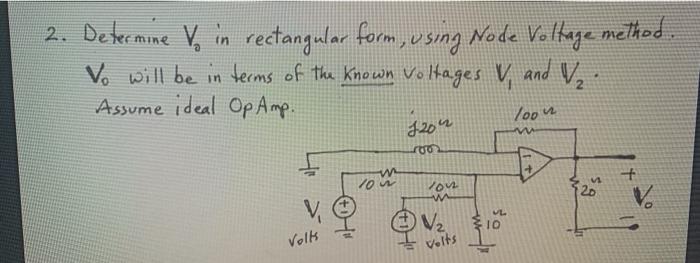 2. Determine Vo in rectangular form, using Node Voltage method.
Vo will be in terms of the known voltages V1 and V2.
Assume ideal OpAmp.
100 Ω
j20 Ω
-
+
10 Ω
10 Ω
20 Ω
+
Vo
-
V1
Volts
+
-
+
-
V2
Volts
10 Ω